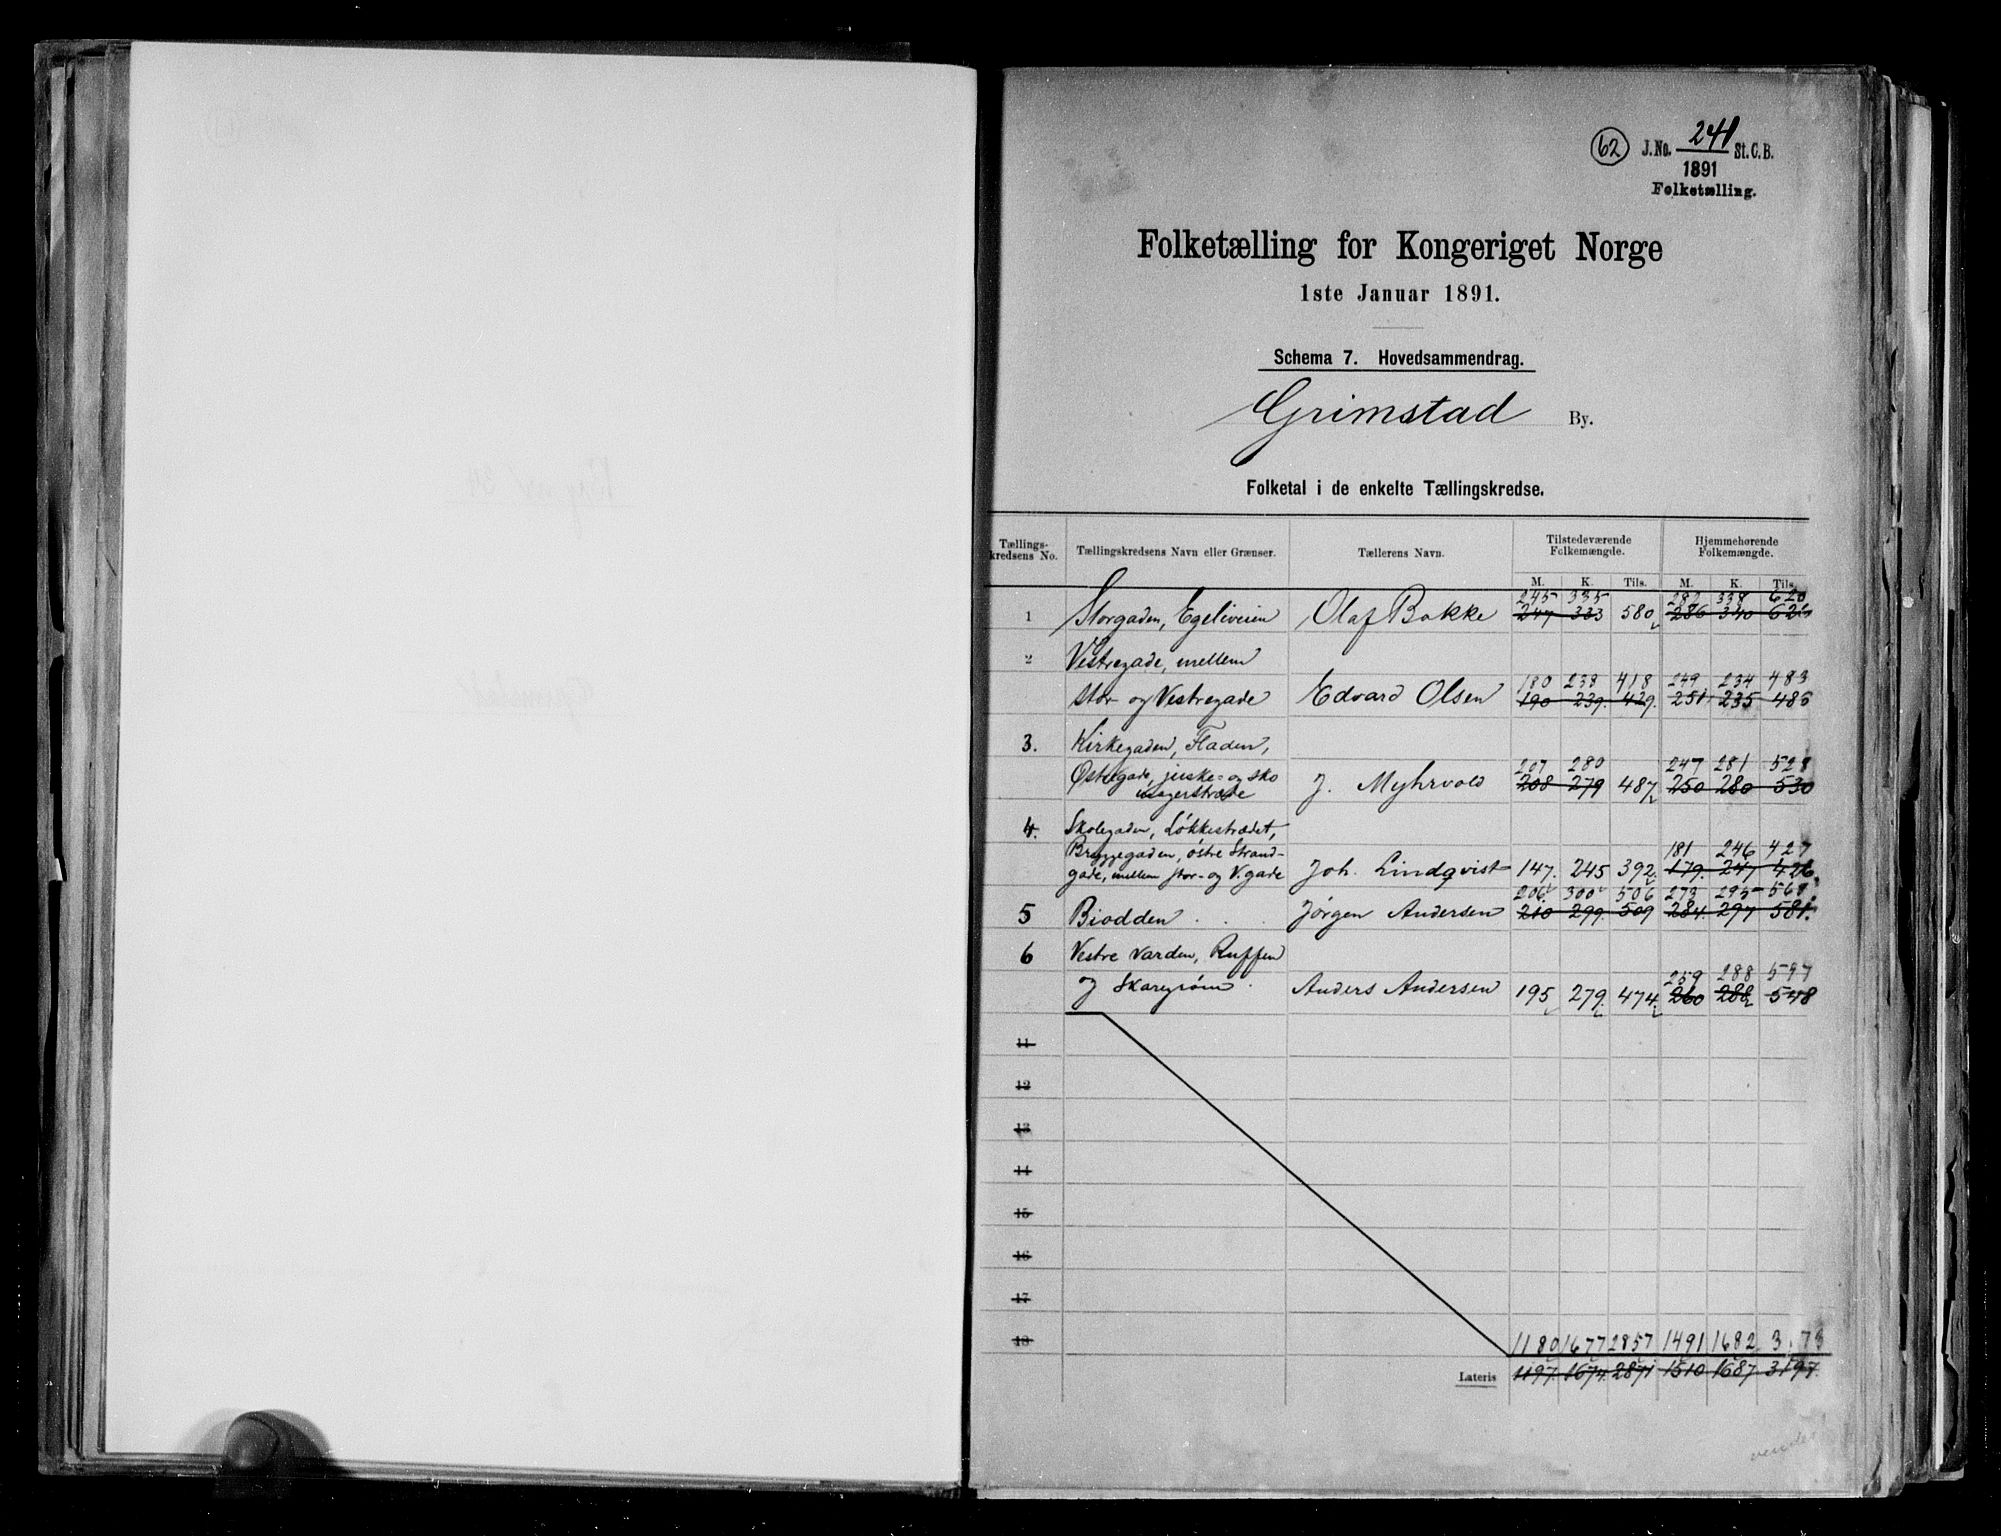 62 J. No. 241 St. C. B.
1891
Folketælling.
Folketælling for Kongeriget Norge
1ste Januar 1891.
Schema 7. Hovedsammendrag.
Grimstad By.
Folketal i de enkelte Tællingskredse.
Tællings- kredsens No. Tællingskredsens Navn eller Grænser. Tællerens Navn. Tilstedeværende Folkemængde. Hjemmehørende Folkemængde.
M. K. Tils. M. K. Tils.
245 335 282 338 620
1 Storgaden, Egeliveien Olaf Bakke 247 333 580 286 340 626
2 Vestregade, mellem
180 238 418 249 234 483
Stor- og Vestregade Edvard Olsen 190 239. 429. 251 235 486
3. Kirkegaden, Fladen,
207 280 247 281 528
Østregade, juske- og sko J. Myhrvold 208 279 487 250 280 530
4. Skolegaden, Løkkestrædet,
Bryggegaden, østre Strand- 181 246 427
gade, mellem stor- og V. gade Joh. Lindqvist 147. 245 392 179. 247 426
206 300 506 273 295 568
5 Biodden Jørgen Andersen 210 299. 509 284. 297 581.
6 Vestre Varden, Ruffen
259 288 547
og Skaregrøm Anders Andersen 195 279. 474 260 288 548
11
12
13
14
15
16
17
18 1180 1677 2857 1491 1682 3173
Lateris 1197. 1674. 2871 1510 1687 3197.